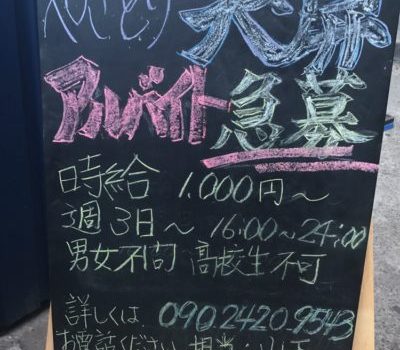 アルバイト急募
時給 1.000円〜
週3日〜 16:00〜24:00
男女不問 高校生不可
詳しくは 090.2420.9543
お電話ください 担当：山下